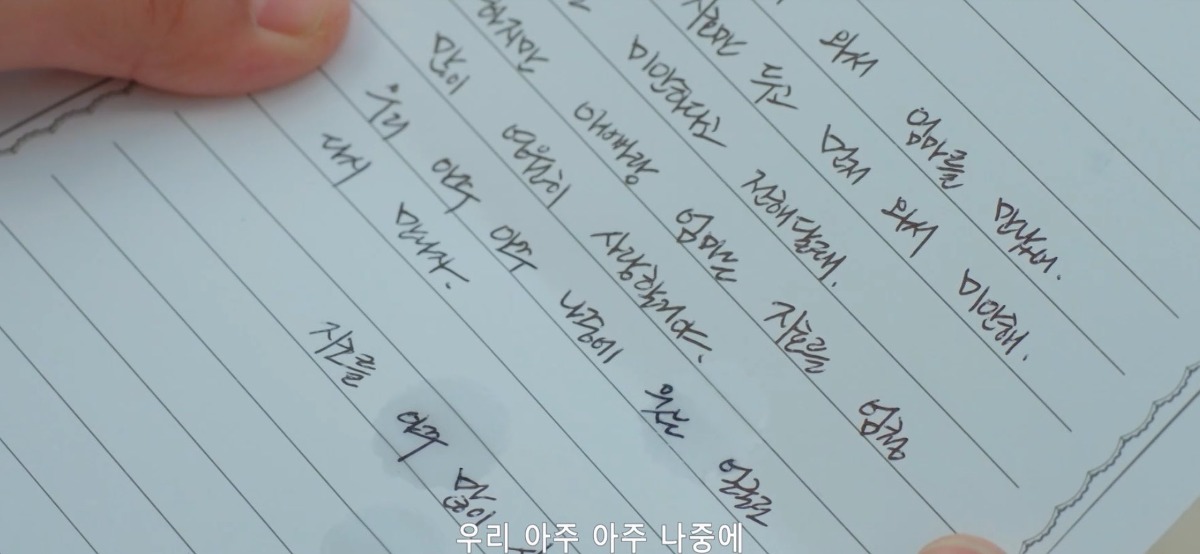 와서 엄마를 만났어.
지호만 두고 먼저 와서 미안해.
미안하다고 전해달래.
하지만 아빠랑 엄마는 지호를 엄청
많이 영원히 사랑할거야.
우리 아주 아주 나중에 웃는 얼굴로
다시 만나자.
지호를 아주 많이
우리 아주 아주 나중에